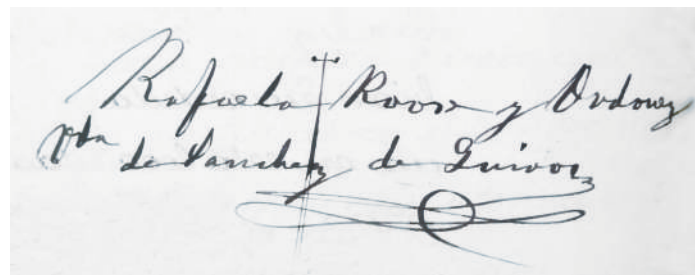 Rafaela Roox y Ordoñez
Vda de Sanchez de Quiros